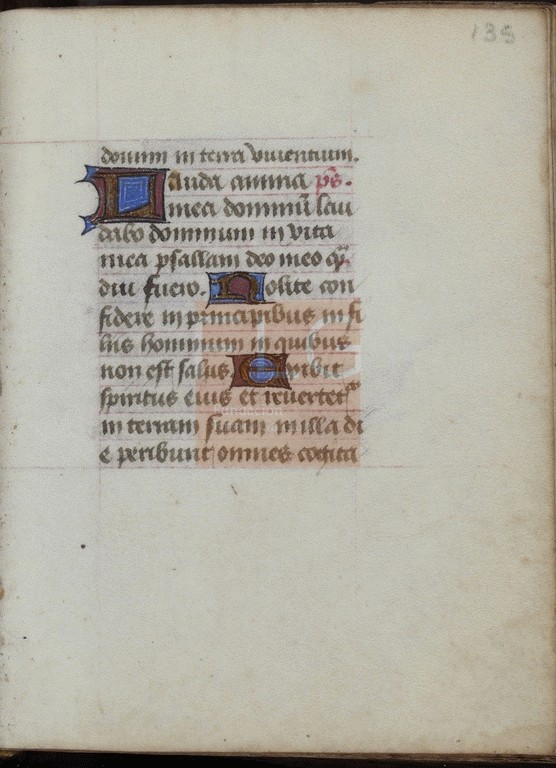 135
domini in terra viventium.
Lauda anima p̄s.
mea dominū lau
dabo dominum in vita
mea psallam deo meo qͣ
diu fuero. Nolite con
fidere in principibus in fi
liis hominum in quibus
non est salus Exibit
spiritus eius et revertetᵘʳ
in terram suam in illa di
e peribunt omnes cogita